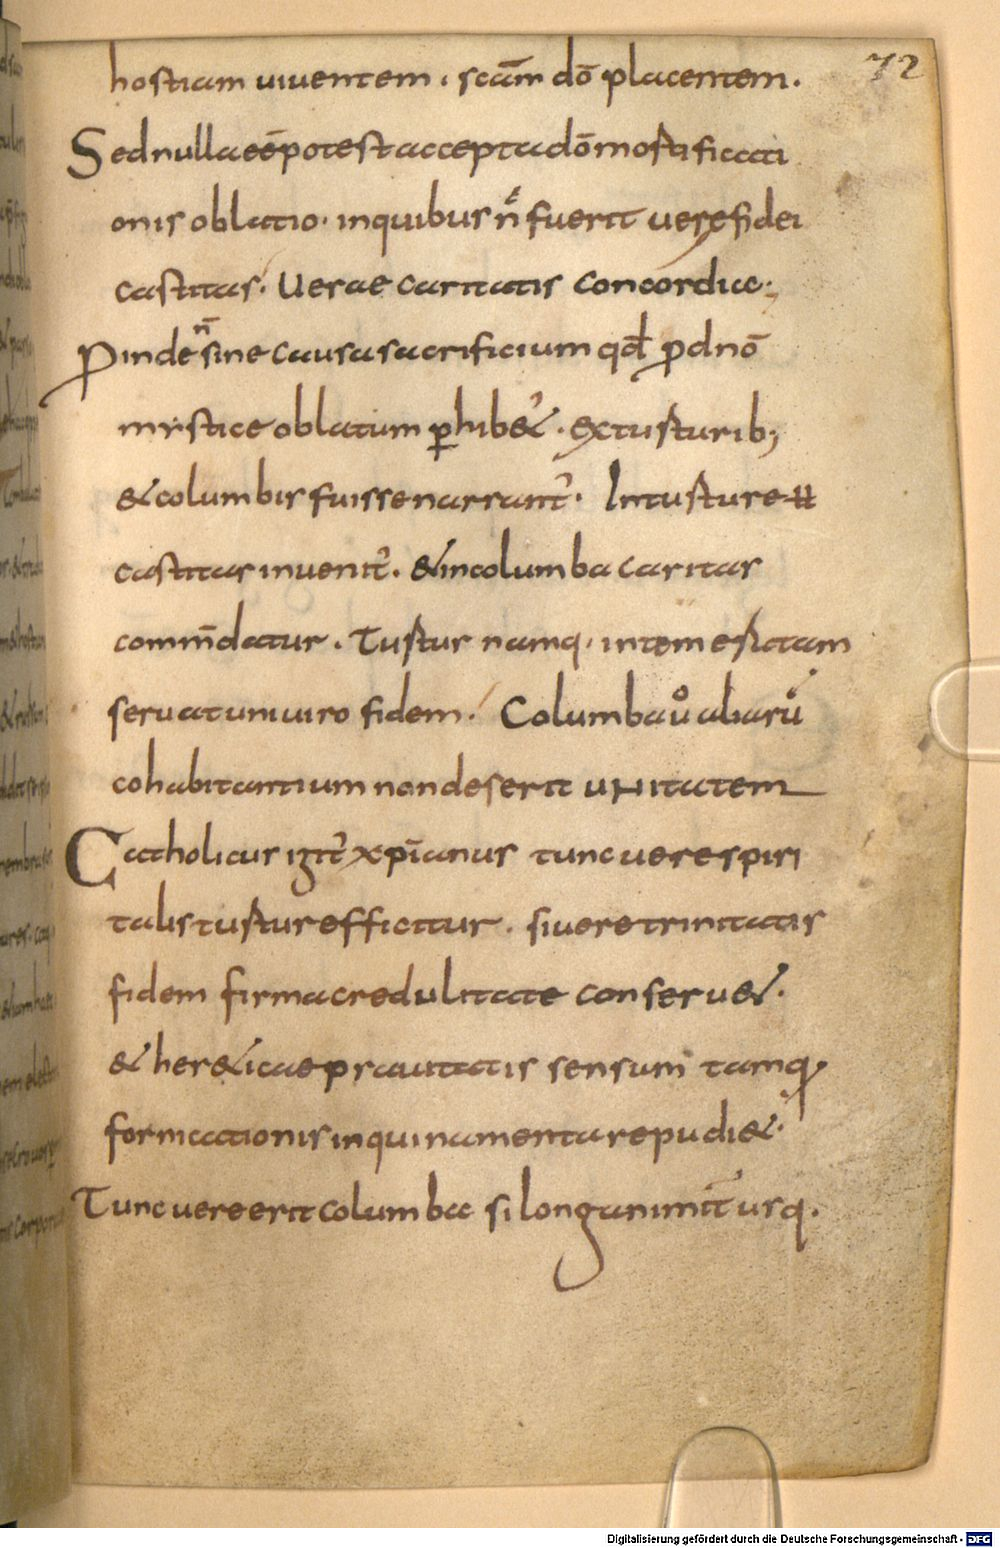 72
hostiam uiuentem . scām dō placentem .
Sed nulla eē potest accepta dō mostificati
onis oblatio . in quibus n̄ fuerit uere fidei
castitas . Uerae caritatis concordia .
Pinde n̄ sine causa sacrificium qđ p dnō
mystice oblatum ꝑhibet᾽ . ex tusturib;
& columbis fuisse narrant᾽ . In tusture
castitas inuenit᾽ . & in columba caritas
comm̄datur . Tustur namq . intemesatam
seruat uni uiro fidem . Columba ů aliarū
cohabitantium non deserit unitatem
Catholicus igit᾽ xp̄ianus tunc uere spiri
talis tustur efficitur . si uere trinitatis
fidem firma credulitate conseru& .
& her&icae prauitatis sensum tamq
fornicationis inquinamenta repudi& .
Tunc uere erit columba si longanimit᾽ usq .
Digitalisierung gefördert durch die Deutsche Forschungsgemeinschaft - DFG